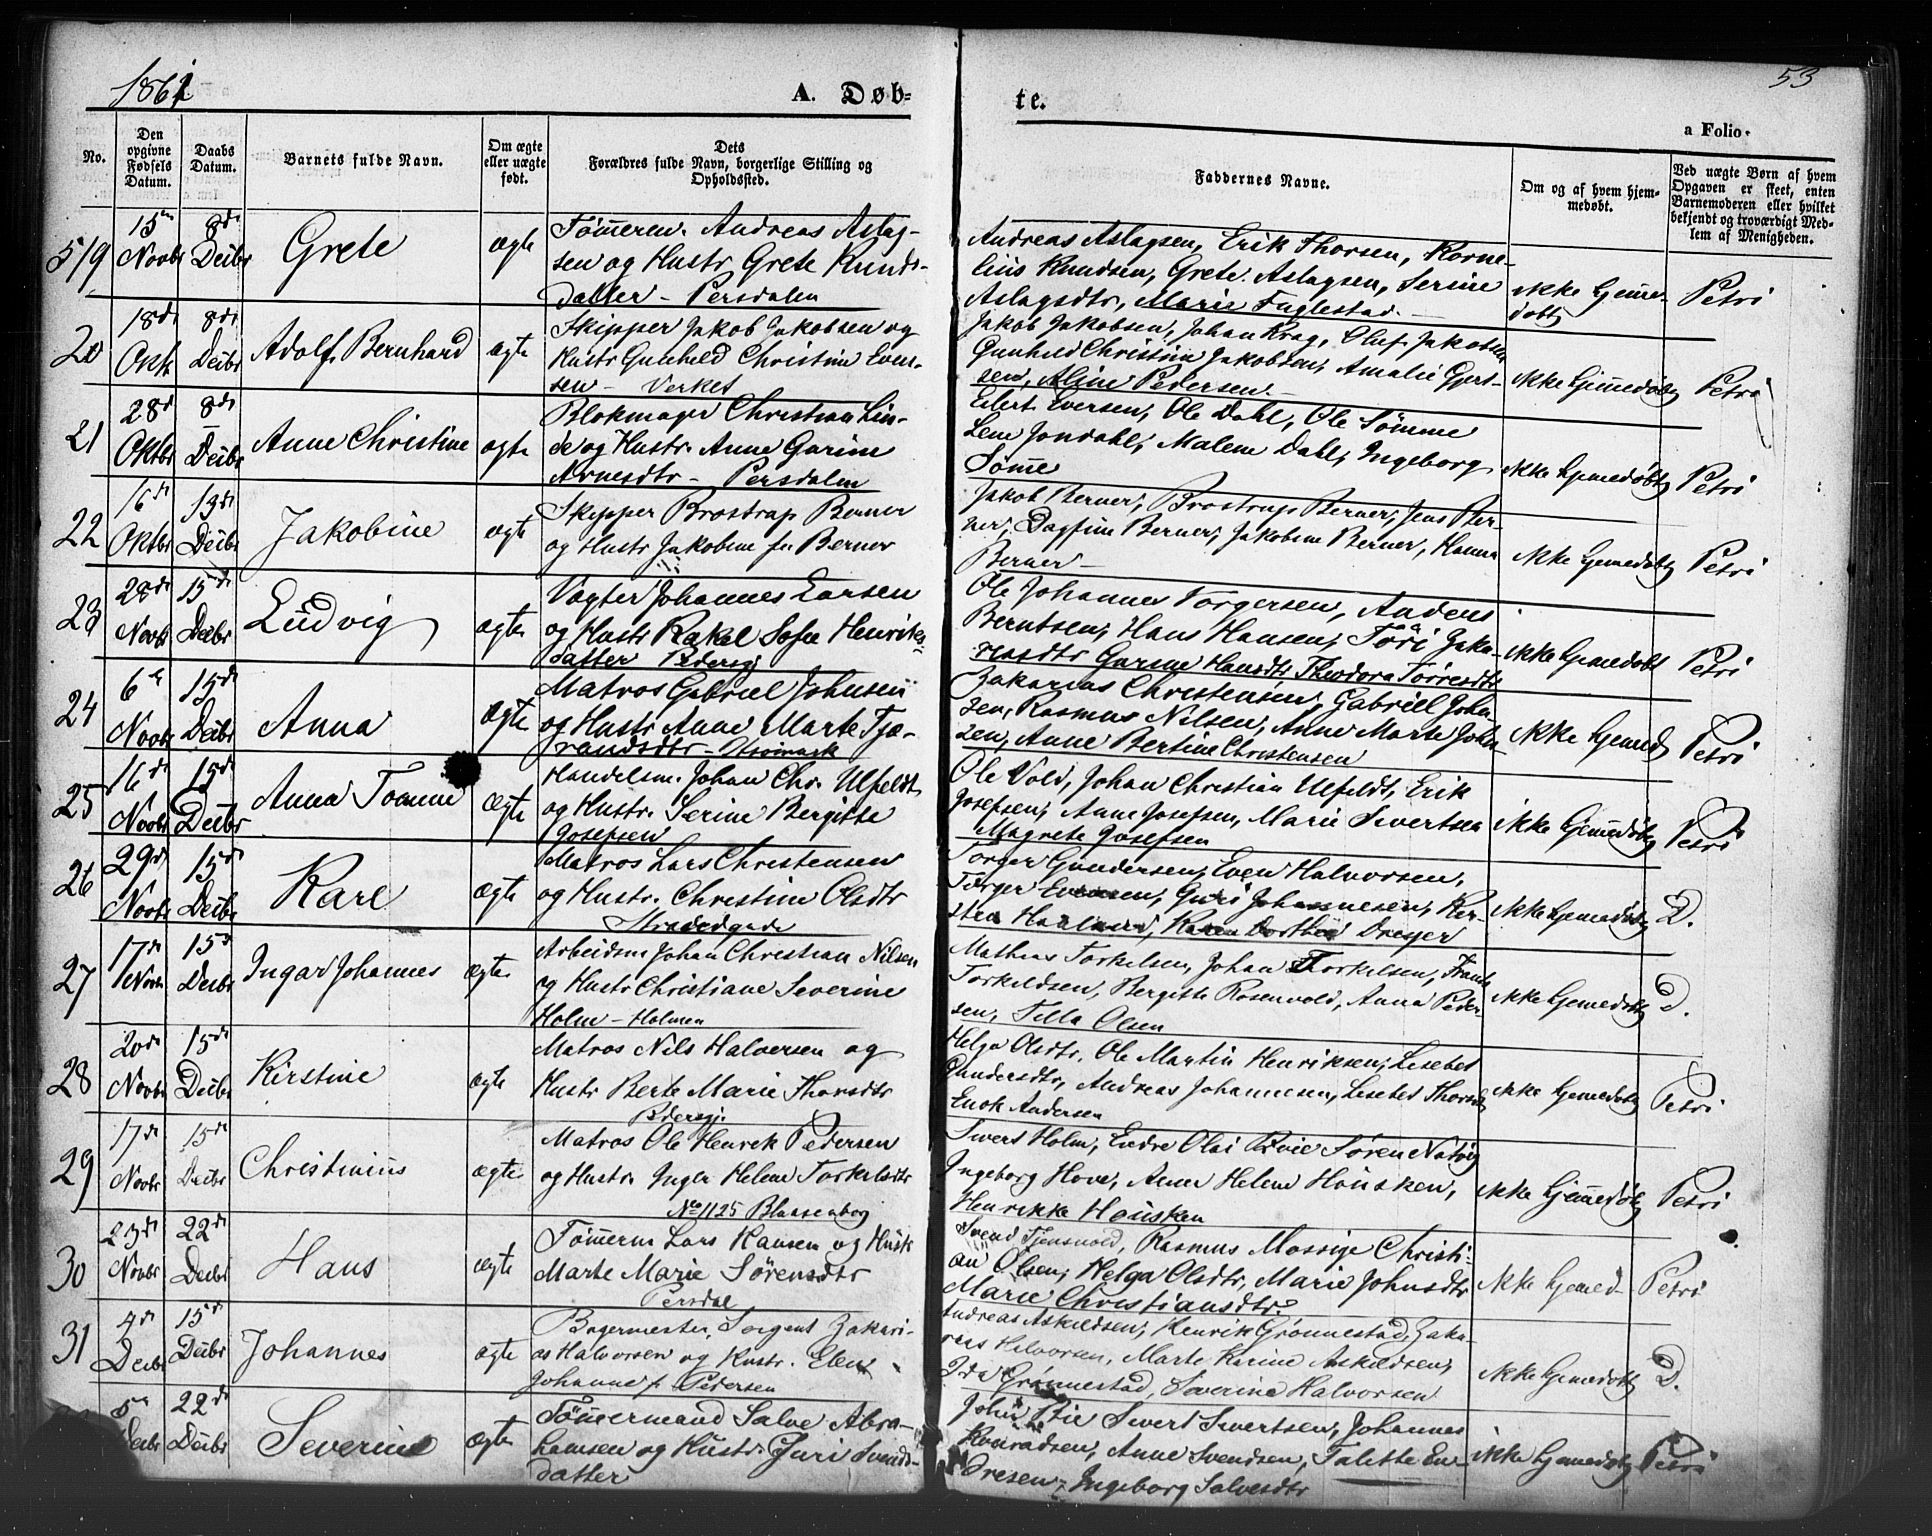 1861
A. Døb-
te.
53
a Folio.
No.
Den opgivne Fødsels Datum.
Daabs Datum.
Barnets fulde Navn.
Om ægte eller uægte født.
Dets Forældres fulde Navn, borgerlige Stilling og Opholdssted.
Faddernes Navne.
Om og af hvem hjemmedøbt.
Ved uægte Børn af hvem Opgaven er skeet, enten Barnemoderen eller hvilket bekjendt og troværdigt Medlem af Menigheden.
519 15 Novbr 8de Deibr Grete ægte
Tømmerm. Andreas Aslag-
sen og Hustr Grete Knuds-
datter - Persdalen
Andreas Aslagsen, Erik Thorsen, Korne-
lius Knudsen, Grete Aslagsen, Serine
Aslagsdtr, Marie Fuglestad.
ikke hjemme-
døbt
Petri
20 18de Oktb 8de Deibr Adolf Bernhard ægte
Skipper Jakob Jakobsen og
Hustr Gunhild Christine Even-
sen - Verket
Jakob Jakobsen, Johan Krag, Oluf Jakobsen
Gunhild Christine Jakobsen, Amalie Gjert-
sen, Aline Pedersen
ikke hjemmedøbt Petri
21 28d Oktbr 8de Deibr Anne Christine ægte
Blokmager Christian Lin-
de og Hustr. Anne Gurine
Arnesdtr - Persdalen
Eilert Eversen, Ole Dahl, Ole Sømme
Lene Jondahl, Malene Dahl, Ingeborg
Sømme
ikke hjemedøbt Petri
22 16de Oktbr 19de Deibr Jakobine ægte
Skipper Brostrup Berner
og Hustr Jakobine f. Berner
Jakob Berner, Brostrup Berner, Jens Ber-
ner, Dagfine Berner, Jakobine Berner, Hanna
Berner
ikke hjemedøbt Petri
23 28de Novb 15de Deibr Ludvig ægte
Vægter Johannes Larsen
og Hustr Rakel Sofie Henriks-
datter Pedersgj
Ole Johannes Torgersen, Anders
Berntsen, Hans Hansen, Tøri Zaka-
riasdtr Gurine Hansdtr Theodora Tørresdtr
ikke hjemedøbt Petri
24 6te Novbr 15de Deibr Anna ægte
Matros Gabriel Johnsen
og Hustr Anne Marte Tjæ-
randsdtr - Strømvek
Zakarias Christensen, Gabriel John-
sen, Rasmus Nilsen, Anne Marte John-
sen, Anne Bertine Christensen
ikke hjemed Petri
25 16de Novbr 15de Deibr Anna Tomine ægte
Handelsm. Johan Chr. Ulfeldt
og Hustr. Serine Bergitte
Josefsen
Ole Vold, Johan Christian Ulfeldt, Erik
Josefsen, Anne Josefsen, Marie Sivertsen
Magrete Josefsen
ikke hjemmedøbt Petri
26 29de Novbr 15d Deibr Karl ægte
Matros Lars Christensen
og Hustr. Christine Olsdtr
Strandgade
Torger Gundersen, Even Halvorsen,
Torger Evensen, Guri Johannesen, Kir-
sten Haaland, Karen Dorthea Dreyer
ikke hjemedøbt D.
27 17de Novbr 15d Deibr Ingar Johannes ægte
Arbeidsm Johan Christian Nilsen
og Hustr Christiane Severine
Holm - Holmen
Mathias Torkelsen, Johan Thorkelsen, Frants
Torkildsen, Bergitte Rosenvold, Anna Peder-
sen, Tilla Olsen
ikke hjemedøbt D.
28 20de Novbr 15de Deibr Kirstine ægte
Matros Nils Halversen og
Hustr Berte Marie Thorsdtr
Pedersgj
Helga Olsdtr, Ole Martin Henriksen, Lisebet
Gundersdtr, Andreas Johannesen, Lisebet Thorsd
Enok Andersen
ikke hjemedøbt Petri
29 17de Novbr 15de Deibr Christinius ægte
Matros Ole Henrik Pedersen
og Hustr. Inger Helene Torkelsdtr
No 1125 Blaasenborg
Sivert Holm, Endre Olai Svie Søren Natvig
Ingeborg Hove, Anne Helene Housken,
Henrikke Housken
ikke hjemmedøbt Petri
30 23de Novbr 22de Deibr Hans ægte
Tømmerm Lars Hansen og Hustr
Marte Marie Sørensdtr
Persdal
Svend Tjensvold, Rasmus Mossige Christi-
an Olsen, Helga Olsdtr, Marie Johnsdtr
Marie Christiansdtr
ikke hjemed- Petri
31 4de Deibr 15de Deibr Johannes ægte
Bagermester, Sergent Zakari-
as Halvorsen og Hustr. Elen
Johanne f. Pedersen
Andreas Askildsen, Henrik Grønnestad, Zaka-
rias Halvorsen, Marte Karine Askildsen,
Ida Grønnestad, Severine Halvorsen
ikke hjemedøbt D.
5te Deibr 22de Deibr Severine ægte
Tømmermand Salve Abra-
hamsen og Hustr. Guri Svends-
datter
John Svie Sivert Sivertsen, Johannes
Konradsen, Anne Svendsen, Talette En-
dresen, Ingeborg Salvesdtr
ikke hjemedøbt Petri